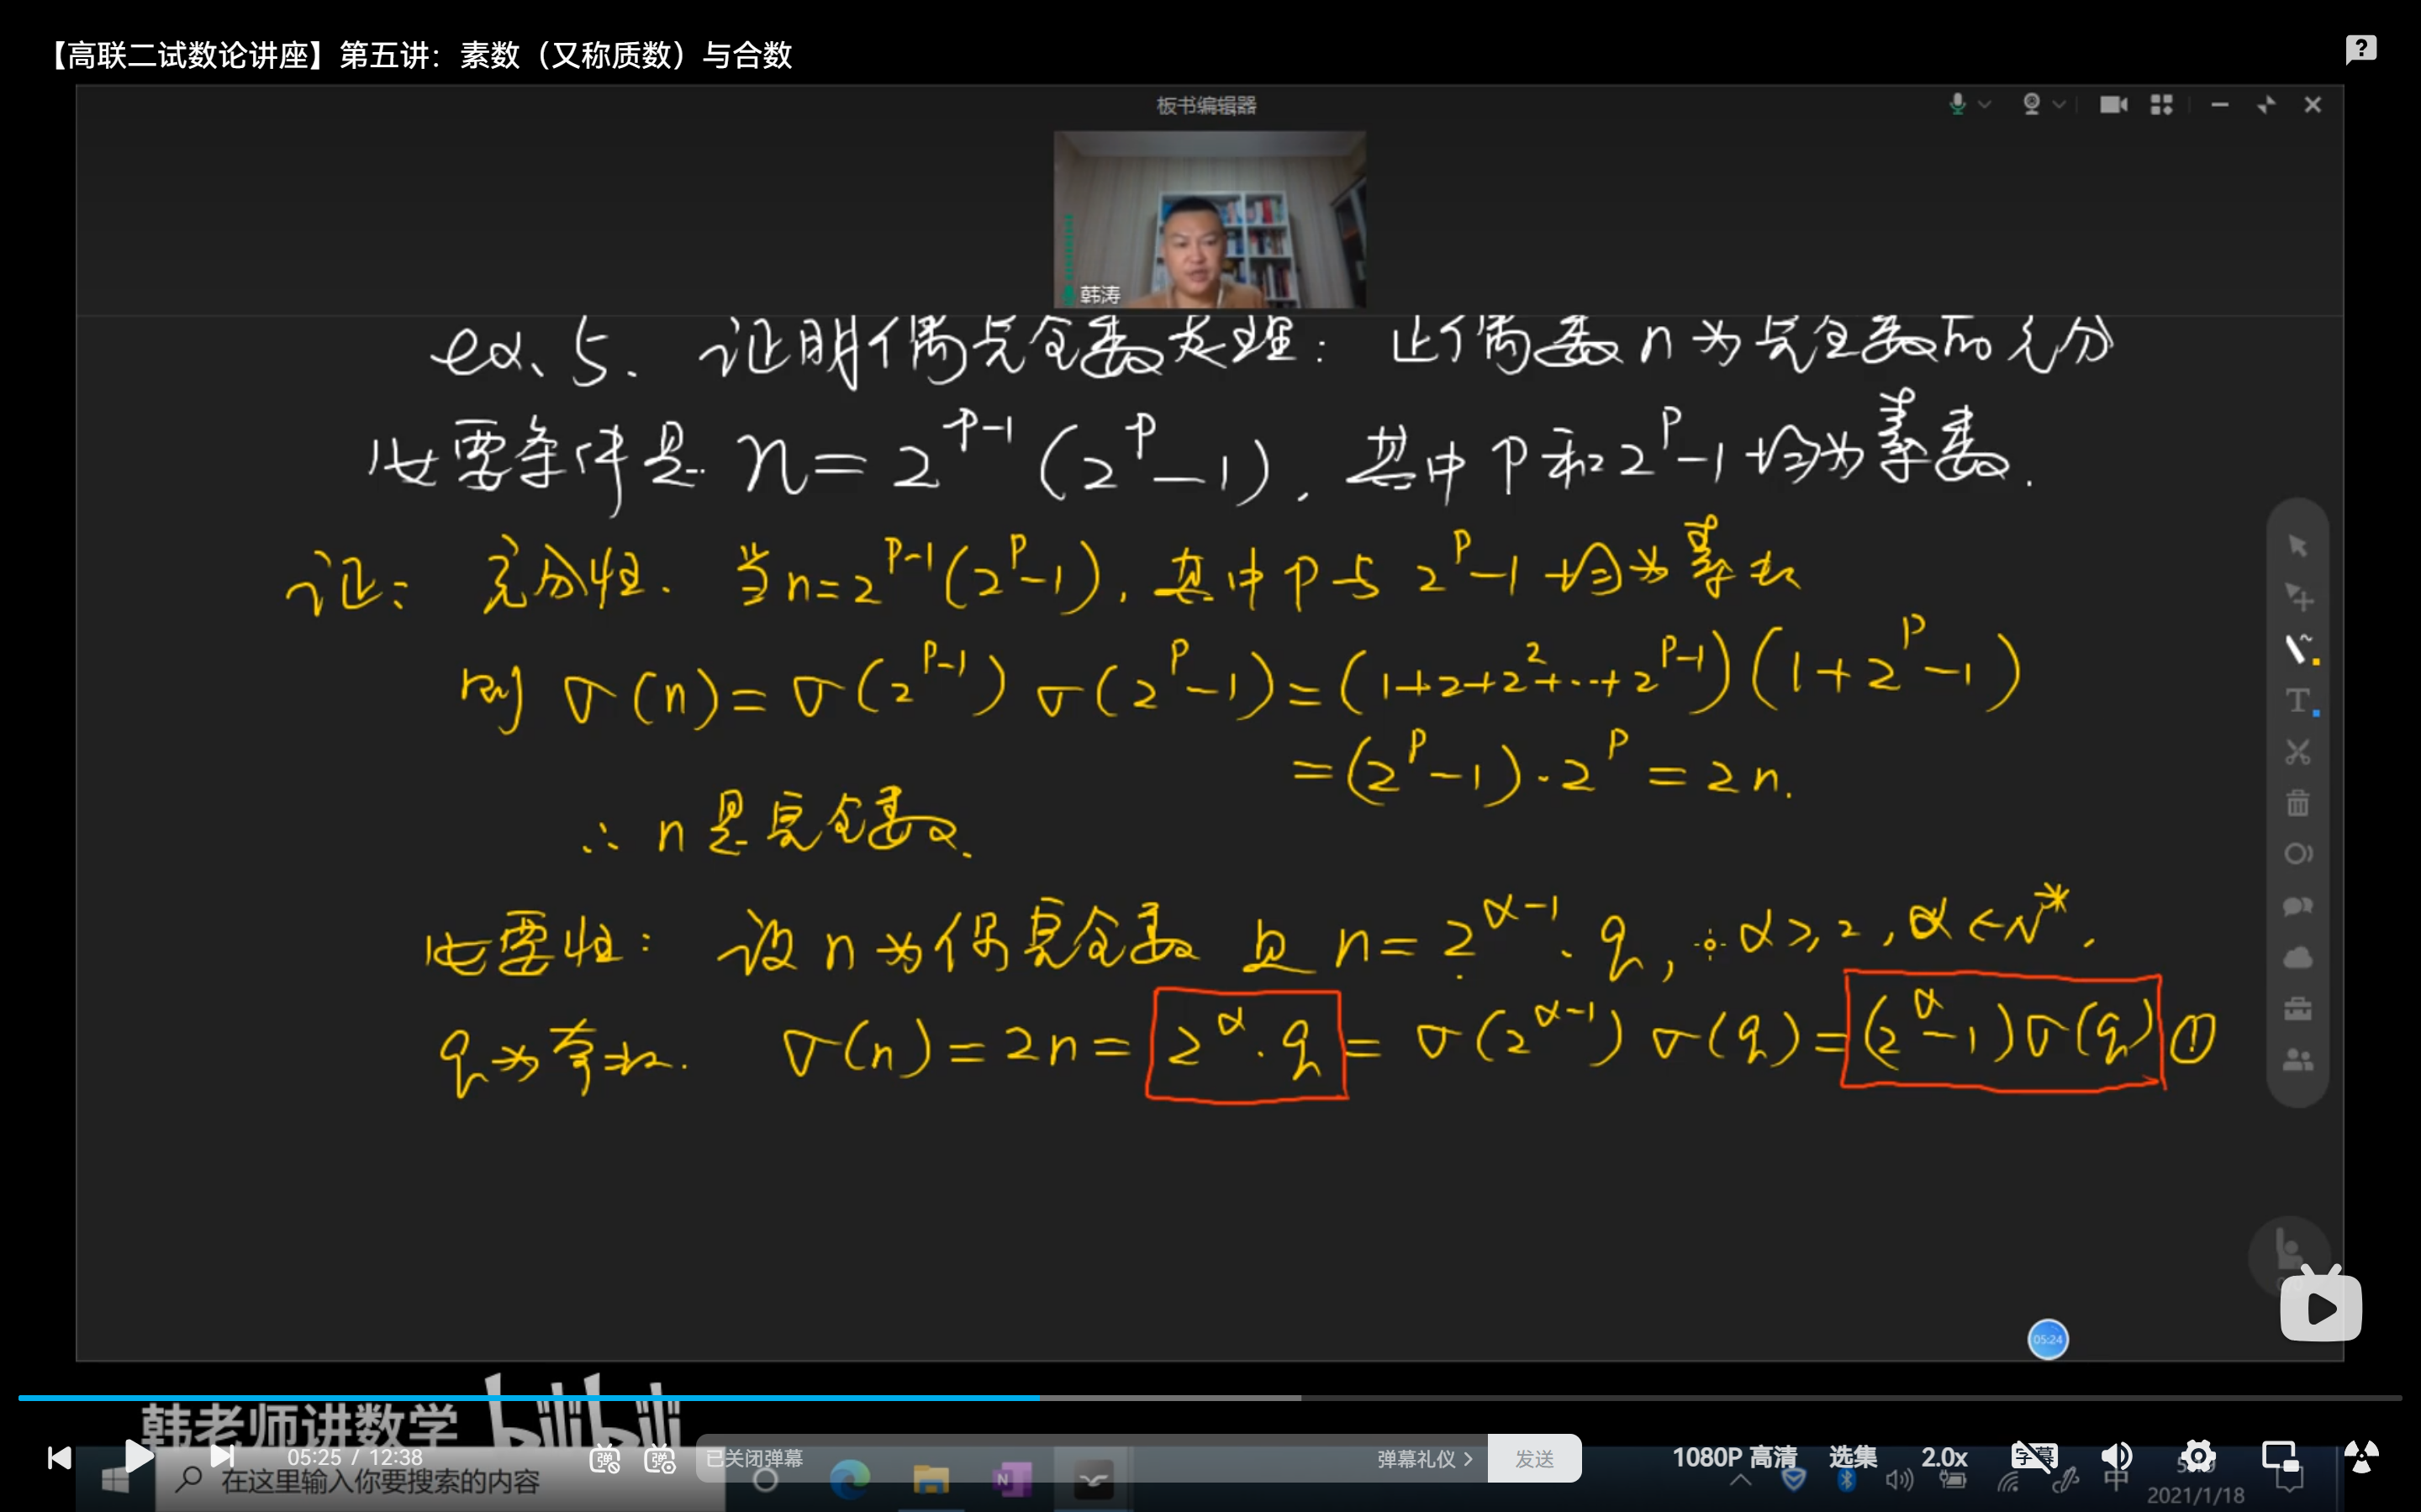 【高联二试数论讲座】第五讲：素数（又称质数）与合数
板书编辑器
韩涛
ex、5. 证明偶完全数定理：正偶数 n 为完全数的充分
必要条件是 n = 2^{p-1} (2^p - 1), 其中 p 和 2^p - 1 均为素数.
证: 充分性. 当 n = 2^{p-1} (2^p - 1), 其中 p 与 2^p - 1 均为素数
则 σ(n) = σ(2^{p-1}) σ(2^p - 1) = (1+2+2^2+…+2^{p-1})(1+2^p-1)
= (2^p - 1)·2^p = 2n.
∴ n 是完全数.
必要性: 设 n 为偶完全数 且 n = 2^{α-1}·q, α≥2, α∈N*.
q 为奇数. σ(n) = 2n = 2^α·q = σ(2^{α-1}) σ(q) = (2^α - 1)σ(q) ①
05:24
韩老师讲数学 bilibili
05:25 / 12:38
弹
弹
已关闭弹幕
弹幕礼仪 >
发送
1080P 高清
选集
2.0x
字幕
在这里输入你要搜索的内容
中
2021/1/18